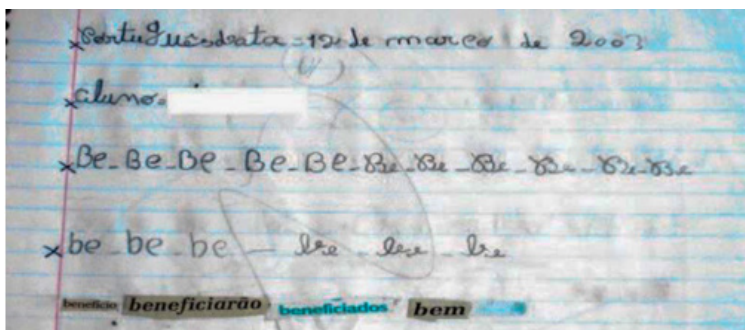 Português data = 12 de março de 2003
aluno.
Be - Be - Be - Be - Be - Be - Be - Be - Be - Be - Be
be - be - be - be - be - be
benefício beneficiarão beneficiados bem